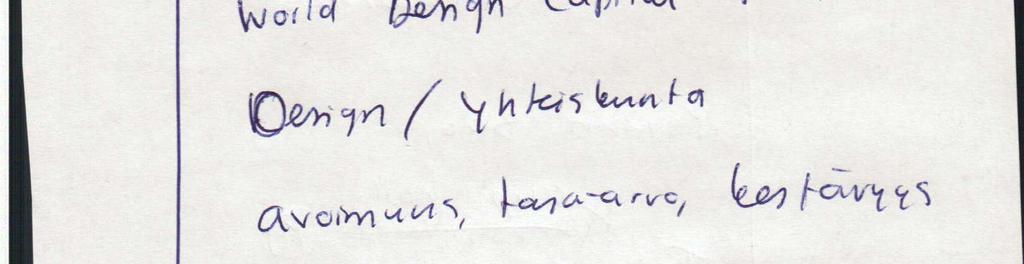 World Design Capital
Design / yhteiskunta
avoimuus, tasa-arvo, kestävyys